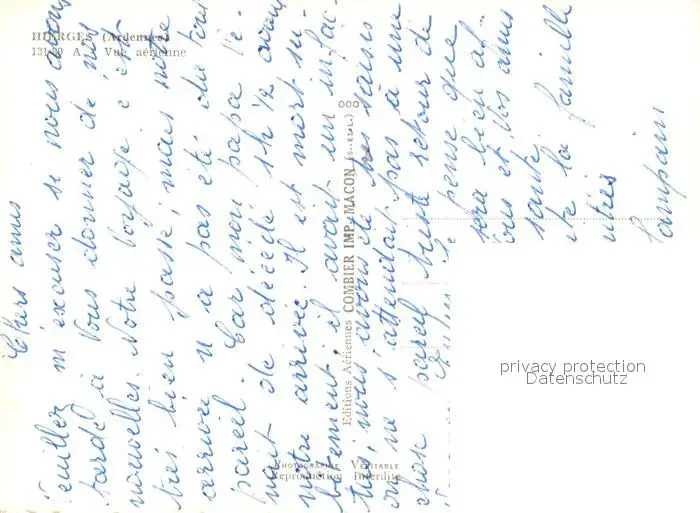 HIERGES (Ardennes)
131-80 A. - Vue aérienne
Chers amis
Veuillez m'excuser si nous avons
tardé à Vous donner de nos
nouvelles. Notre Voyage c'est
très bien passé, mais notre
arrivée n'a pas été du tout
pareil. Car mon papa ve-
nait de décédé 5h 1/2 avant
notre arrivée. Il est mort su-
bitement, il avait un infac-
tus, nous avons été très saisis
on ne s'attendait pas à une
chose pareil triste retour de
je pense que
sera bien al
vous et Vos amis
santé
de la famille
Campain
Editions Aériennes COMBIER IMP. MACON (S.-ET-L.)
PHOTOGRAPHIE VERITABLE
Reproduction Interdite
privacy protection
Datenschutz